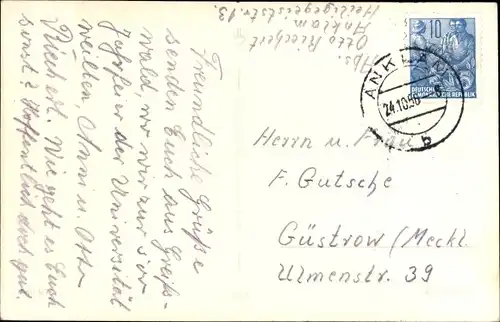 Freundliche Grüße
senden Euch aus Greifs-
wald wo wir zur 500
Jahrfeier der Universität
weilten, Anni u. Otto
Riechert. Wie geht es Euch
sonst? Hoffentlich doch gut.
Abs.
Otto Riechert
Anklam
Heiligegeiststr. 13.
10
DEUTSCHE DEMOKRATISCHE REPUBLIK
ANKLAM
24.10.56
b
Herrn u. Frau
F. Gutsche
Güstrow (Meckl.
Ulmenstr. 39